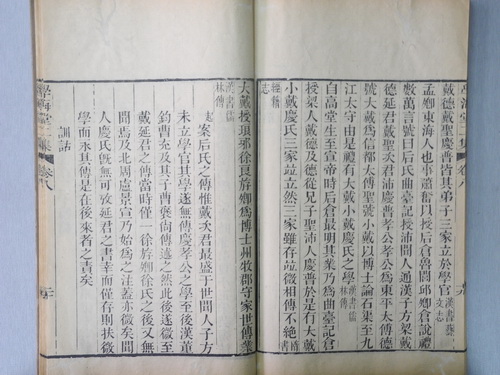 戴德戴聖慶普皆其弟子三家立於學官漢書藝文志
孟卿東海人也事蕭奮以授后倉魯閭邱卿倉說禮
數萬言號曰后氏曲臺記授沛聞人通漢子方梁戴
德延君戴聖次君沛慶普孝公孝公爲東平太傅德
號大戴爲信都太傅聖號小戴以博士論石渠至九
江太守由是禮有大戴小戴慶氏之學漢書儒林傳
自高堂生至宣帝時后倉最明其業乃爲曲臺記倉
授梁人戴德及德從兄子聖沛人慶普於是有大戴
小戴慶氏三家竝立然三家雖存竝微相傳不絕隋書
經籍志
學海堂二集 卷八
大戴授琅邪徐良斿卿爲博士州牧郡守家世傳業
漢書儒林傳
案后氏之傳惟戴次君最盛于世聞人子方
未立學官其學遂無傳慶孝公之學至後漢董
鈞曹充及其子襃尙傳述之然此後遂微至
戴延君之傳當時僅一徐斿卿徐氏之後又無
聞焉及北周盧景宣乃始爲之注蓋亦微矣間
人慶氏旣無可攷延君之書幸而僅存則扶微
學而永其傳是在後來者之責矣
訓詁